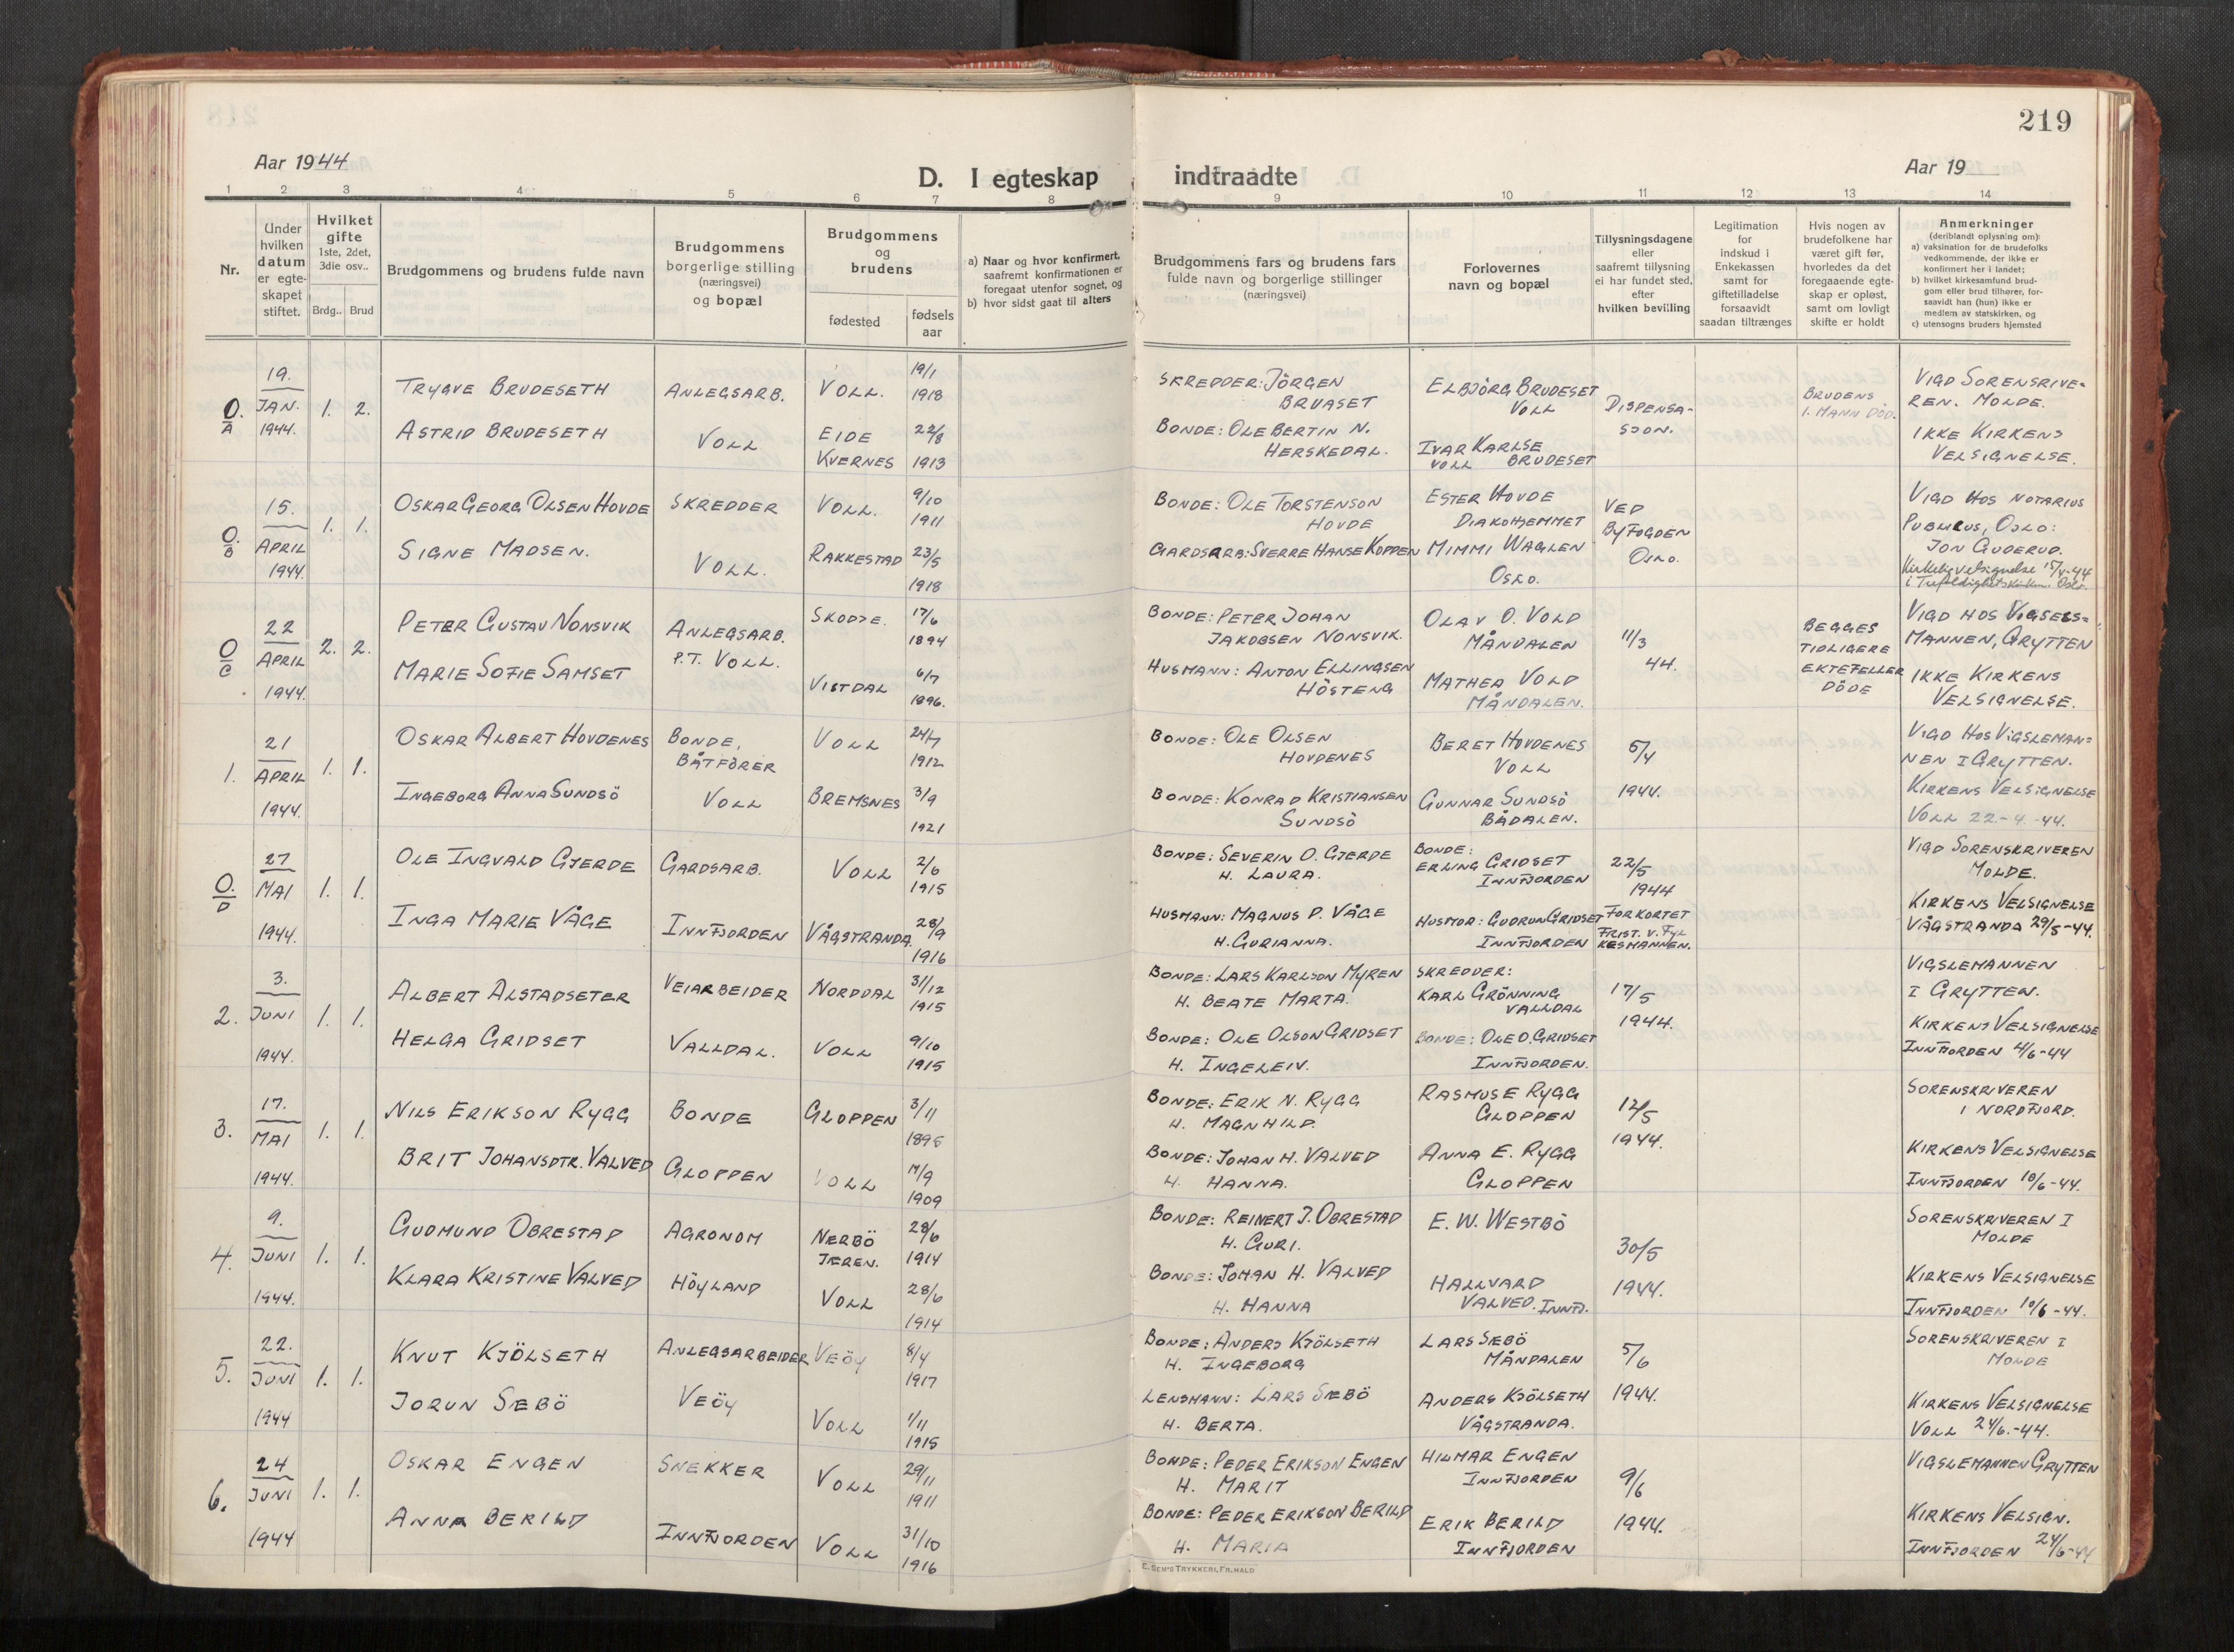 219
Aar 1944
D. I egteskap
indtraadte
Aar 19
1 2 3 4 5 6 7 8 9 10 11 12 13 14
Nr.
Under
hvilken
datum
er egte-
skapet
stiftet.
Hvilket
gifte
1ste, 2det,
3die osv..
Brdg.. Brud
Brudgommens og brudens fulde navn
Brudgommens
borgerlige stilling
(næringsvei)
og bopæl
Brudgommens
og
brudens
fødested
fødsels
aar
a) Naar og hvor konfirmert,
saafremt konfirmationen er
foregaat utenfor sognet, og
b) hvor sidst gaat til alters
Brudgommens fars og brudens fars
fulde navn og borgerlige stillinger
(næringsvei)
Forlovernes
navn og bopæl
Tillysningsdagene
eller
saafremt tillysning
ei har fundet sted,
efter
hvilken bevilling
Legitimation
for
indskud i
Enkekassen
samt for
giftetilladelse
forsaavidt
saadan tiltrænges
Hvis nogen av
brudefolkene har
været gift før,
hvorledes da det
foregaaende egte-
skap er opløst,
samt om lovligt
skifte er holdt
Anmerkninger
(deriblandt oplysning om):
a) vaksination for de brudefolks
vedkommende, der ikke er
konfirmert her i landet;
b) hvilket kirkesamfund brud-
gom eller brud tilhører, for-
saavidt han (hun) ikke er
medlem av statskirken, og
c) utensogns bruders hjemsted
O.
A
19.
JAN.
1944.
1. 2.
TRYGVE BRUDESETH
ASTRID BRUDESETH
ANLEGSARB.
VOLL
VOLL. 19/1
1918
EIDE 22/8
KVERNES 1913
SKREDDER: JÖRGEN
BRUASET
BONDE: OLE BERTIN N.
HERSKEDAL.
ELBJÖRG BRUDESET
VOLL
IVAR KARLSE
VOLL BRUDESET
DISPENSA-
SJON.
BRUDENS
1. MANN DÖD.
VIGD SORENSRIVE-
REN. MOLDE.
IKKE KIRKENS
VELSIGNELSE.
O.
B
15.
APRIL
1944.
1. 1.
OSKAR GEORG OLSEN HOVDE
SIGNE MADSEN.
SKREDDER
VOLL.
VOLL. 9/10
1911
RAKKESTAD 23/5
1918
BONDE: OLE TORSTENSON
HOVDE
GARDSARB: SVERRE HANSE KOPPEN
ESTER HOVDE
DIAKOHJEMMET
MIMMI WAGLEN
OSLO.
VED
BYFOGDEN
OSLO.
VIGD HOS NOTARIUS
PUBLICUS, OSLO:
JON GUDERUD.
Kirkelig velsignelse 15/4-44
i Trefoldighetskirken. Oslo.
O
C
22
APRIL
1944.
2. 2.
PETER GUSTAV NONSVIK
MARIE SOFIE SAMSET
ANLEGSARB.
P.T. VOLL.
SKODJE. 17/6
1894
VISTDAL 6/7
1896.
BONDE: PETER JOHAN
JAKOBSEN NONSVIK.
HUSMANN: ANTON ELLINGSEN
HÖSTENG
OLAV O. VOLD
MÅNDALEN
MATHEA VOLD
MÅNDALEN.
11/3
44.
BEGGES
TIDLIGERE
EKTEFELLER
DÖDE
VIGD HOS VIGSELS-
MANNEN, GRYTTEN
IKKE KIRKENS
VELSIGNELSE.
1.
21
APRIL
1944.
1. 1.
OSKAR ALBERT HOVDENES
INGEBORG ANNA SUNDSÖ
BONDE,
BÅTFÖRER
VOLL
VOLL 24/7
1912
BREMSNES 3/9
1921
BONDE: OLE OLSEN
HOVDENES
BONDE: KONRAD KRISTIANSEN
SUNDSÖ
BERET HOVDENES
VOLL
GUNNAR SUNDSÖ
BÅDALEN.
5/4
1944.
VIGD HOS VIGSLEMAN-
NEN I GRYTTEN.
KIRKENS VELSIGNELSE
VOLL 22-4-44.
O.
D
27
MAI
1944.
1. 1.
OLE INGVALD GJERDE
INGA MARIE VÅGE
GARDSARB.
INNFJORDEN
VOLL 2/6
1915
VÅGSTRANDA 28/9
1916
BONDE: SEVERIN O. GJERDE
H. LAURA.
HUSMANN: MAGNUS P. VÅGE
H. GURIANNA.
BONDE:
ERLING GRIDSET
INNFJORDEN
HUSMOR: GUDRUN GRIDSET
INNFJORDEN
22/5
1944
FORKORTET
FRIST. V. FYL
KESMANNEN.
VIGD SORENSKRIVEREN
MOLDE.
KIRKENS VELSIGNELSE
VÅGSTRANDA 29/5-44.
2.
3.
JUNI
1944.
1. 1.
ALBERT ALSTADSETER
HELGA GRIDSET
VEIARBEIDER
VALLDAL.
NORDDAL 31/12
1915
VOLL 9/10
1915
BONDE: LARS KARLSON MYREN
H. BEATE MARTA.
BONDE: OLE OLSON GRIDSET
H. INGELEIV.
SKREDDER:
KARL GRÖNNING
VALLDAL
BONDE: OLE O. GRIDSET
INNFJORDEN.
17/5
1944.
VIGSLEMANNEN
I GRYTTEN.
KIRKENS VELSIGNELSE
INNFJORDEN 4/6-44
3.
17.
MAI
1944.
1. 1.
NILS ERIKSON RYGG
BRIT JOHANSDTR. VALVED
BONDE
GLOPPEN
GLOPPEN 3/11
1895
VOLL 17/9
1909
BONDE: ERIK N. RYGG
H. MAGNHILD.
BONDE: JOHAN H. VALVED
H. HANNA.
RASMUSE RYGG
GLOPPEN
ANNA E. RYGG
GLOPPEN
12/5
1944.
SORENSKRIVEREN
I NORDFJORD.
KIRKENS VELSIGNELSE
INNFJORDEN 10/6-44.
4.
9.
JUNI
1944.
1. 1.
GUDMUND OBRESTAD
KLARA KRISTINE VALVED
AGRONOM
HÖYLAND
NERBÖ 28/6
JÆREN. 1914
VOLL 28/6
1914
BONDE: REINERT J. OBRESTAD
H. GURI.
BONDE: JOHAN H. VALVED
H. HANNA
E. W. WESTBÖ
HALLVARD
VALVED. INNFJ.
30/5
1944.
SORENSKRIVEREN I
MOLDE
KIRKENS VELSIGNELSE
INNFJORDEN 10/6-44.
5.
22.
JUNI
1944
1. 1.
KNUT KJÖLSETH
JORUN SÆBÖ
ANLEGSARBEIDER
VEÖY
VEÖY 8/4
1917
VOLL 1/11
1915
BONDE: ANDERS KJÖLSETH
H. INGEBORG
LENSMANN: LARS SÆBÖ
H. BERTA.
LARS SÆBÖ
MÅNDALEN
ANDERS KJÖLSETH
VÅGSTRANDA.
5/6
1944.
SORENSKRIVEREN I
MOLDE
KIRKENS VELSIGNELSE
VOLL 24/6.-44.
6.
24
JUNI
1944
1. 1.
OSKAR ENGEN
ANNA BERILD
SNEKKER
INNFJORDEN
VOLL 29/11
1911
VOLL 31/10
1916
BONDE: PEDER ERIKSON ENGEN
H. MARIT
BONDE: PEDER ERIKSON BERILD
H. MARIA
HILMAR ENGEN
INNFJORDEN
ERIK BERILD
INNFJORDEN
9/6
1944.
VIGSLEMANNEN GRYTTEN
KIRKENS VELSIGN.
INNFJORDEN 24/6-44
E. SEM'S TRYKKERI, FR.HALD